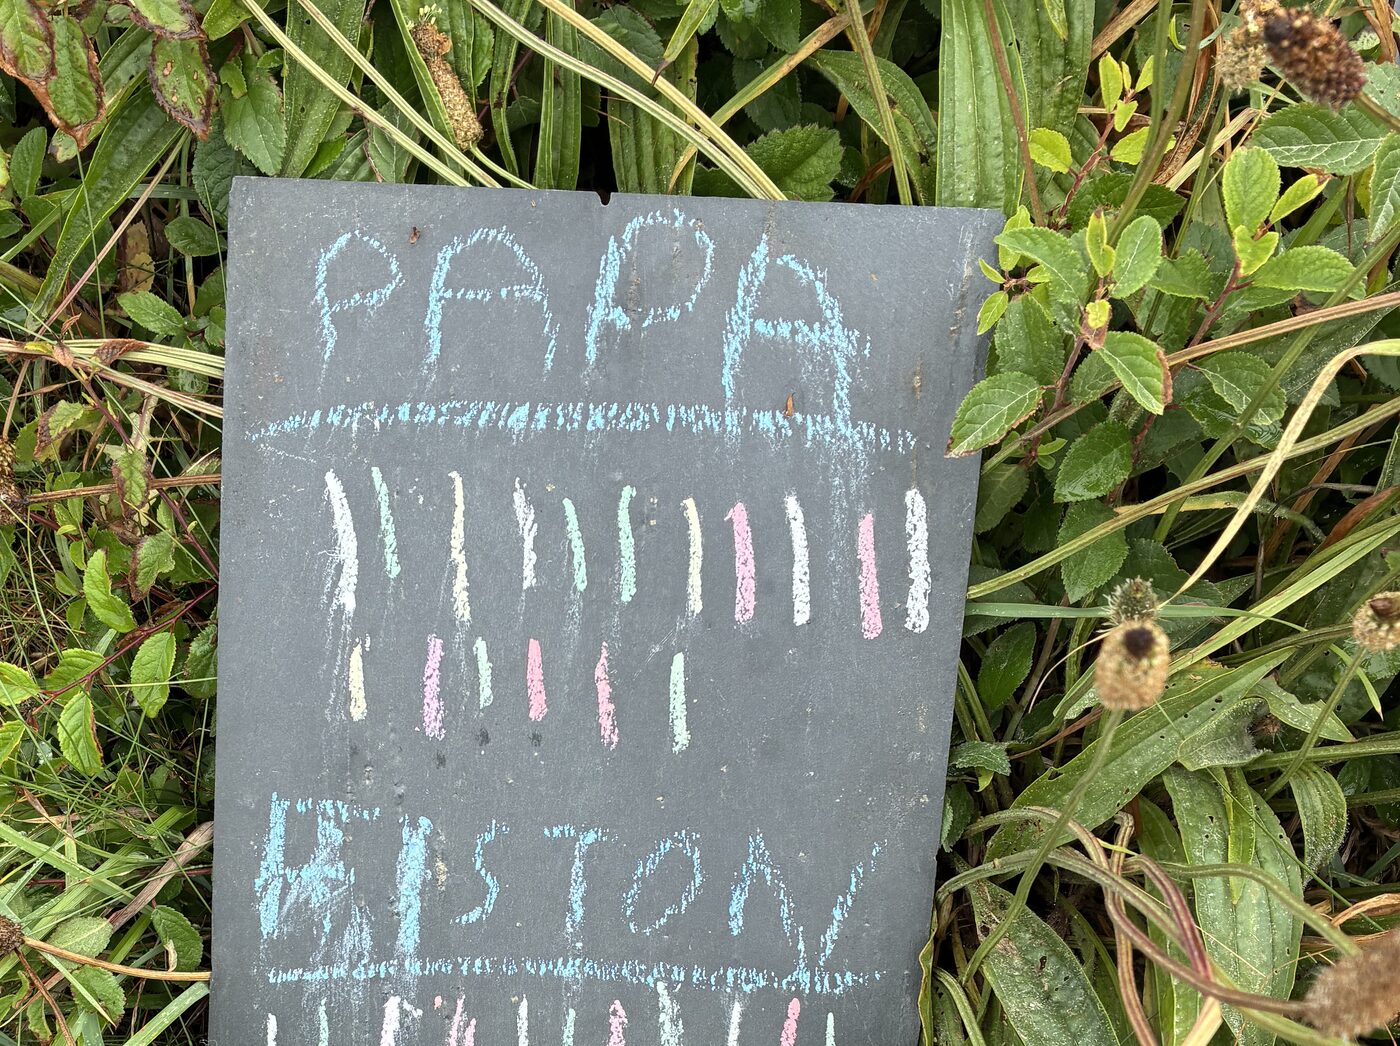 PAPA
FISTON